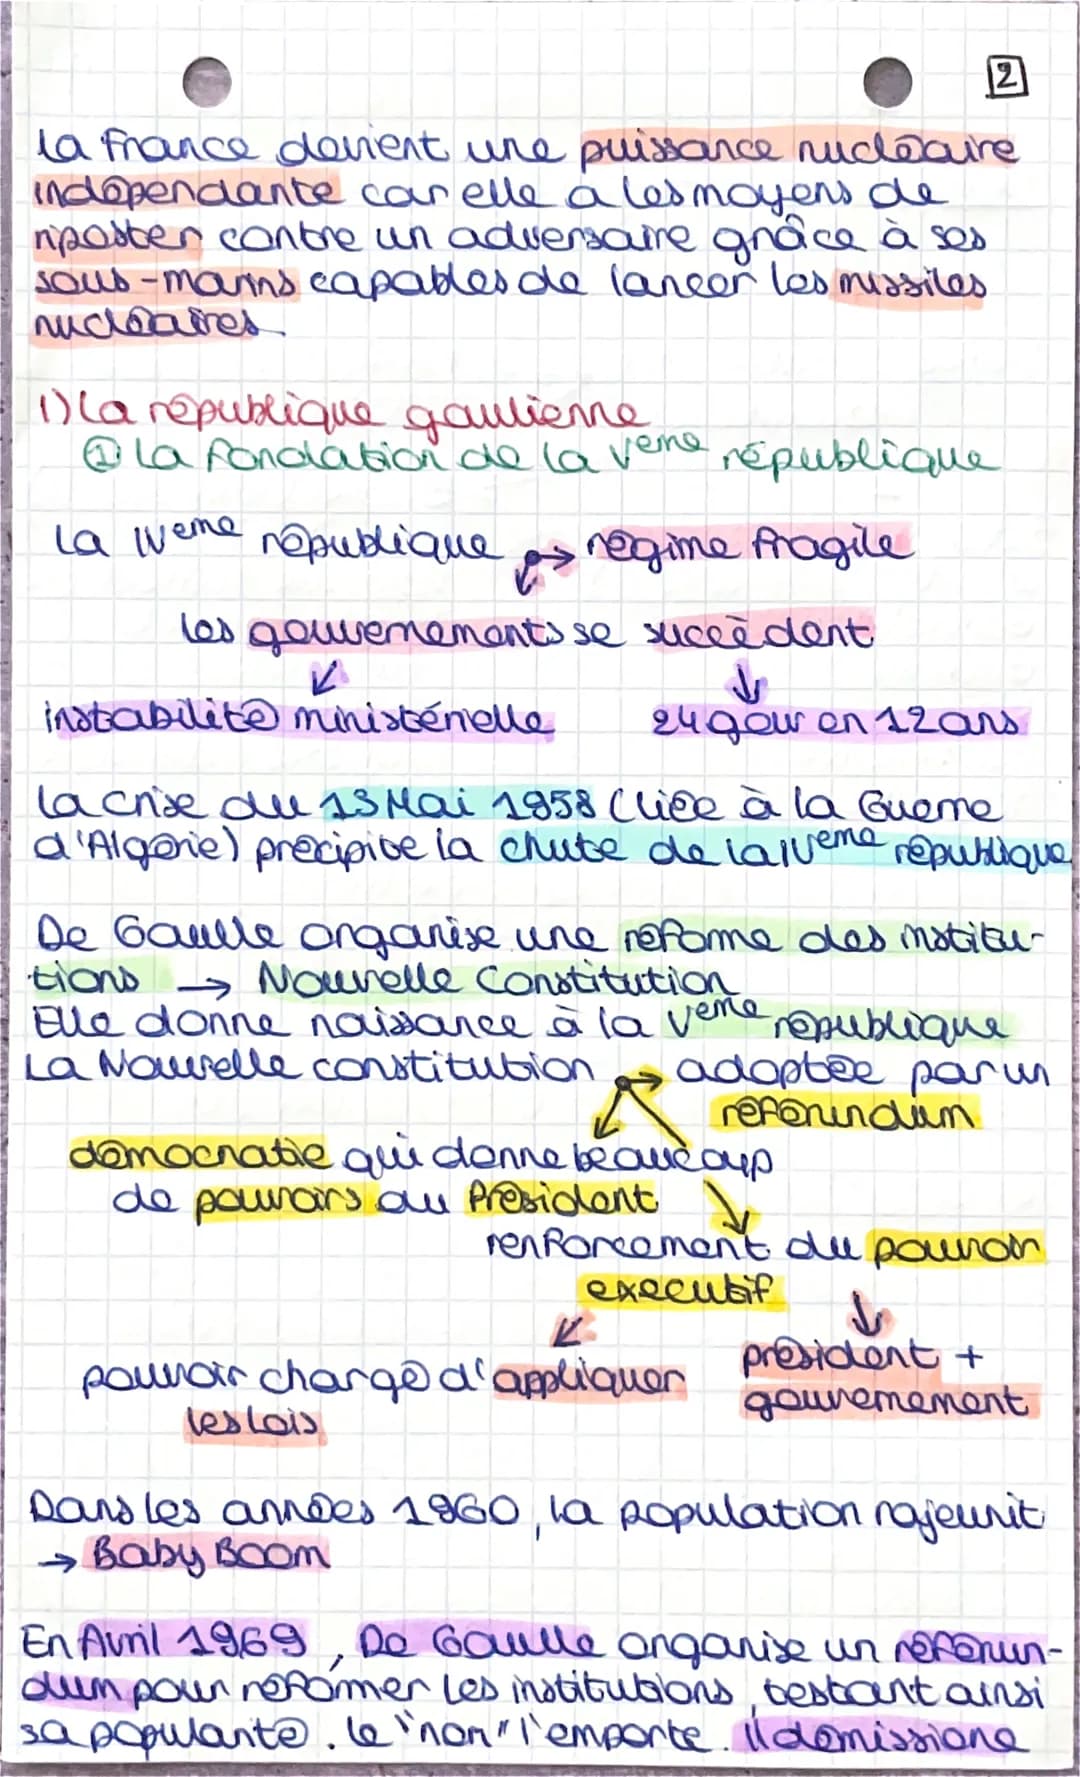 2
La France devient une puissance nucléaire
indépendante car elle a les moyens de
riposter contre un adversaire grâce à ses
sous-marins capables de lancer les missiles
nucléaires.
1) La république gaulienne
① La Fondation de la Vème république
La IVeme république → régime fragile
les gouvernements se succèdent
instabilité ministérielle 24 gouv en 12 ans
La crise du 13 Mai 1958 (liée à la Guerre
d'Algérie) précipite la chute de la IVeme république
De Gaulle organise une réforme des institu-
tions → Nouvelle Constitution
Elle donne naissance à la Veme république
La Nouvelle constitution → adoptée par un
référundum
démocratie qui donne beaucoup
de pouvoirs au Président
renforcement du pouvoir
executif
pouvoir chargé d'appliquer
les lois
président +
gouvernement
Dans les années 1960, la population rajeunit
→ Baby Boom
En Avril 1969, De Gaulle organise un référun-
dum pour réformer les institutions, testant ainsi
sa popularité. le "non" l'emporte. Il démissione